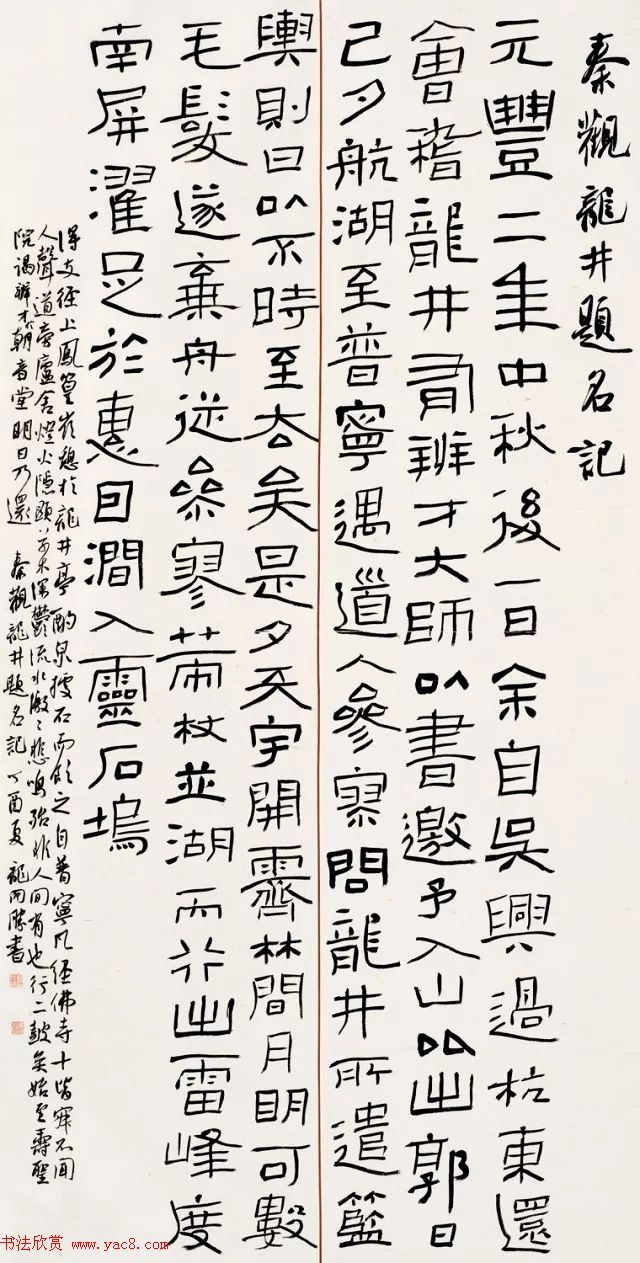 秦觀龍井題名記
元豐二年中秋後一日余自吳興過杭東還
會稽龍井有辨才大師以書邀予入山比出郭日
已夕航湖至普寧遇道人參寥問龍井所遣籃
輿則曰以不時至去矣是夕天宇開霽林間月明可數
毛髮遂棄舟從參寥策杖並湖而行出雷峰度
南屏濯足於惠因澗入靈石塢
得支徑上鳳篁嶺憩於龍井亭酌泉據石而飲之自普寧凡經佛寺十皆寂不聞
人聲道旁廬舍燈火隱顯草木深鬱流水激激悲鳴殆非人間有也行二鼓矣始至壽聖
院謁辨才朝音堂明日乃還 秦觀龍井題名記 丁酉夏 龍 書
书法欣赏 www.yac8.com